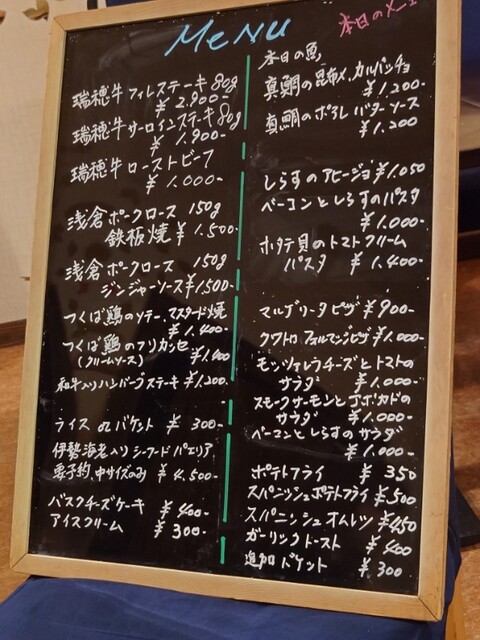 MENU
本日のメニュー
瑞穂牛フィレステーキ80g
¥2.900-
瑞穂牛サーロインステーキ80g
¥1.900-
瑞穂牛ローストビーフ
¥1.000-
浅倉ポークロース 150g
鉄板焼 ¥1.500-
浅倉ポークロース 150g
ジンジャーソース ¥1,500-
つくば鶏のソテー、マスタード焼
¥1.400-
つくば鶏のフリカッセ
(クリームソース) ¥1.400
和牛入りハンバーグステーキ ¥1,200.
ライス orバケット ¥300-
伊勢海老入りシーフードパエリア
要予約、中サイズのみ ¥4,500-
バスクチーズケーキ ¥400-
アイスクリーム ¥300-
本日の魚
真鯛の昆布〆カルパッチョ
¥1.200-
真鯛のポワレ バターソース
¥1.200
しらすのアヒージョ ¥1.050
ベーコンとしらすのパスタ
¥1.000-
ホタテ貝のトマトクリーム
パスタ ¥1.400-
マルゲリータピザ ¥900-
クワトロフォルマッジピザ ¥1.000-
モッツァレラチーズとトマトの
サラダ ¥1.000-
スモークサーモンとアボカドの
サラダ ¥1.000-
ベーコンとしらすのサラダ
¥1.000-
ポテトフライ ¥350
スパニッシュポテトフライ ¥500
スパニッシュオムレツ ¥450
ガーリックトースト ¥400
追加バケット ¥300